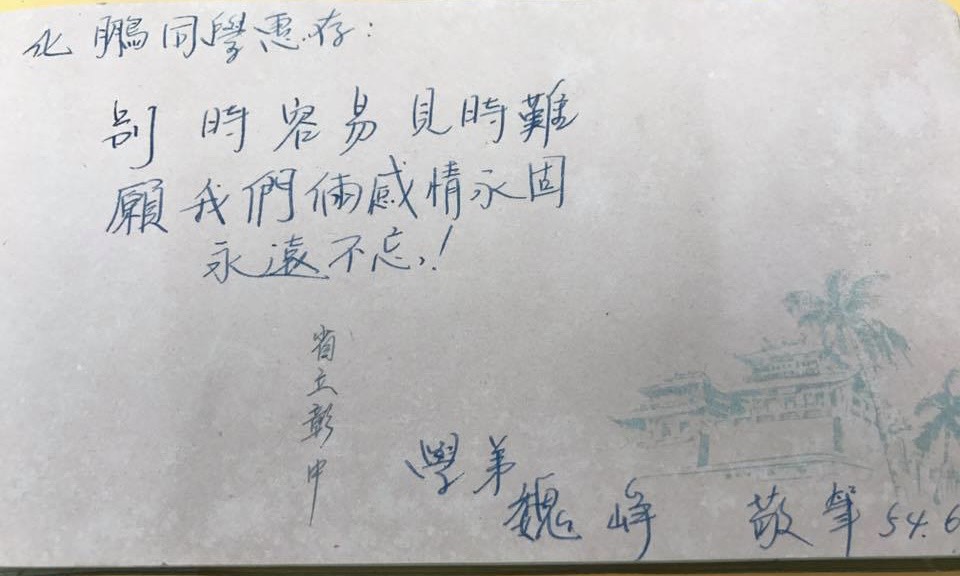 化鵬同學惠存:
別時容易見時難
願我們倆感情永固
永遠不忘!
省立彰中
學弟
魏峰 敬筆 54.6